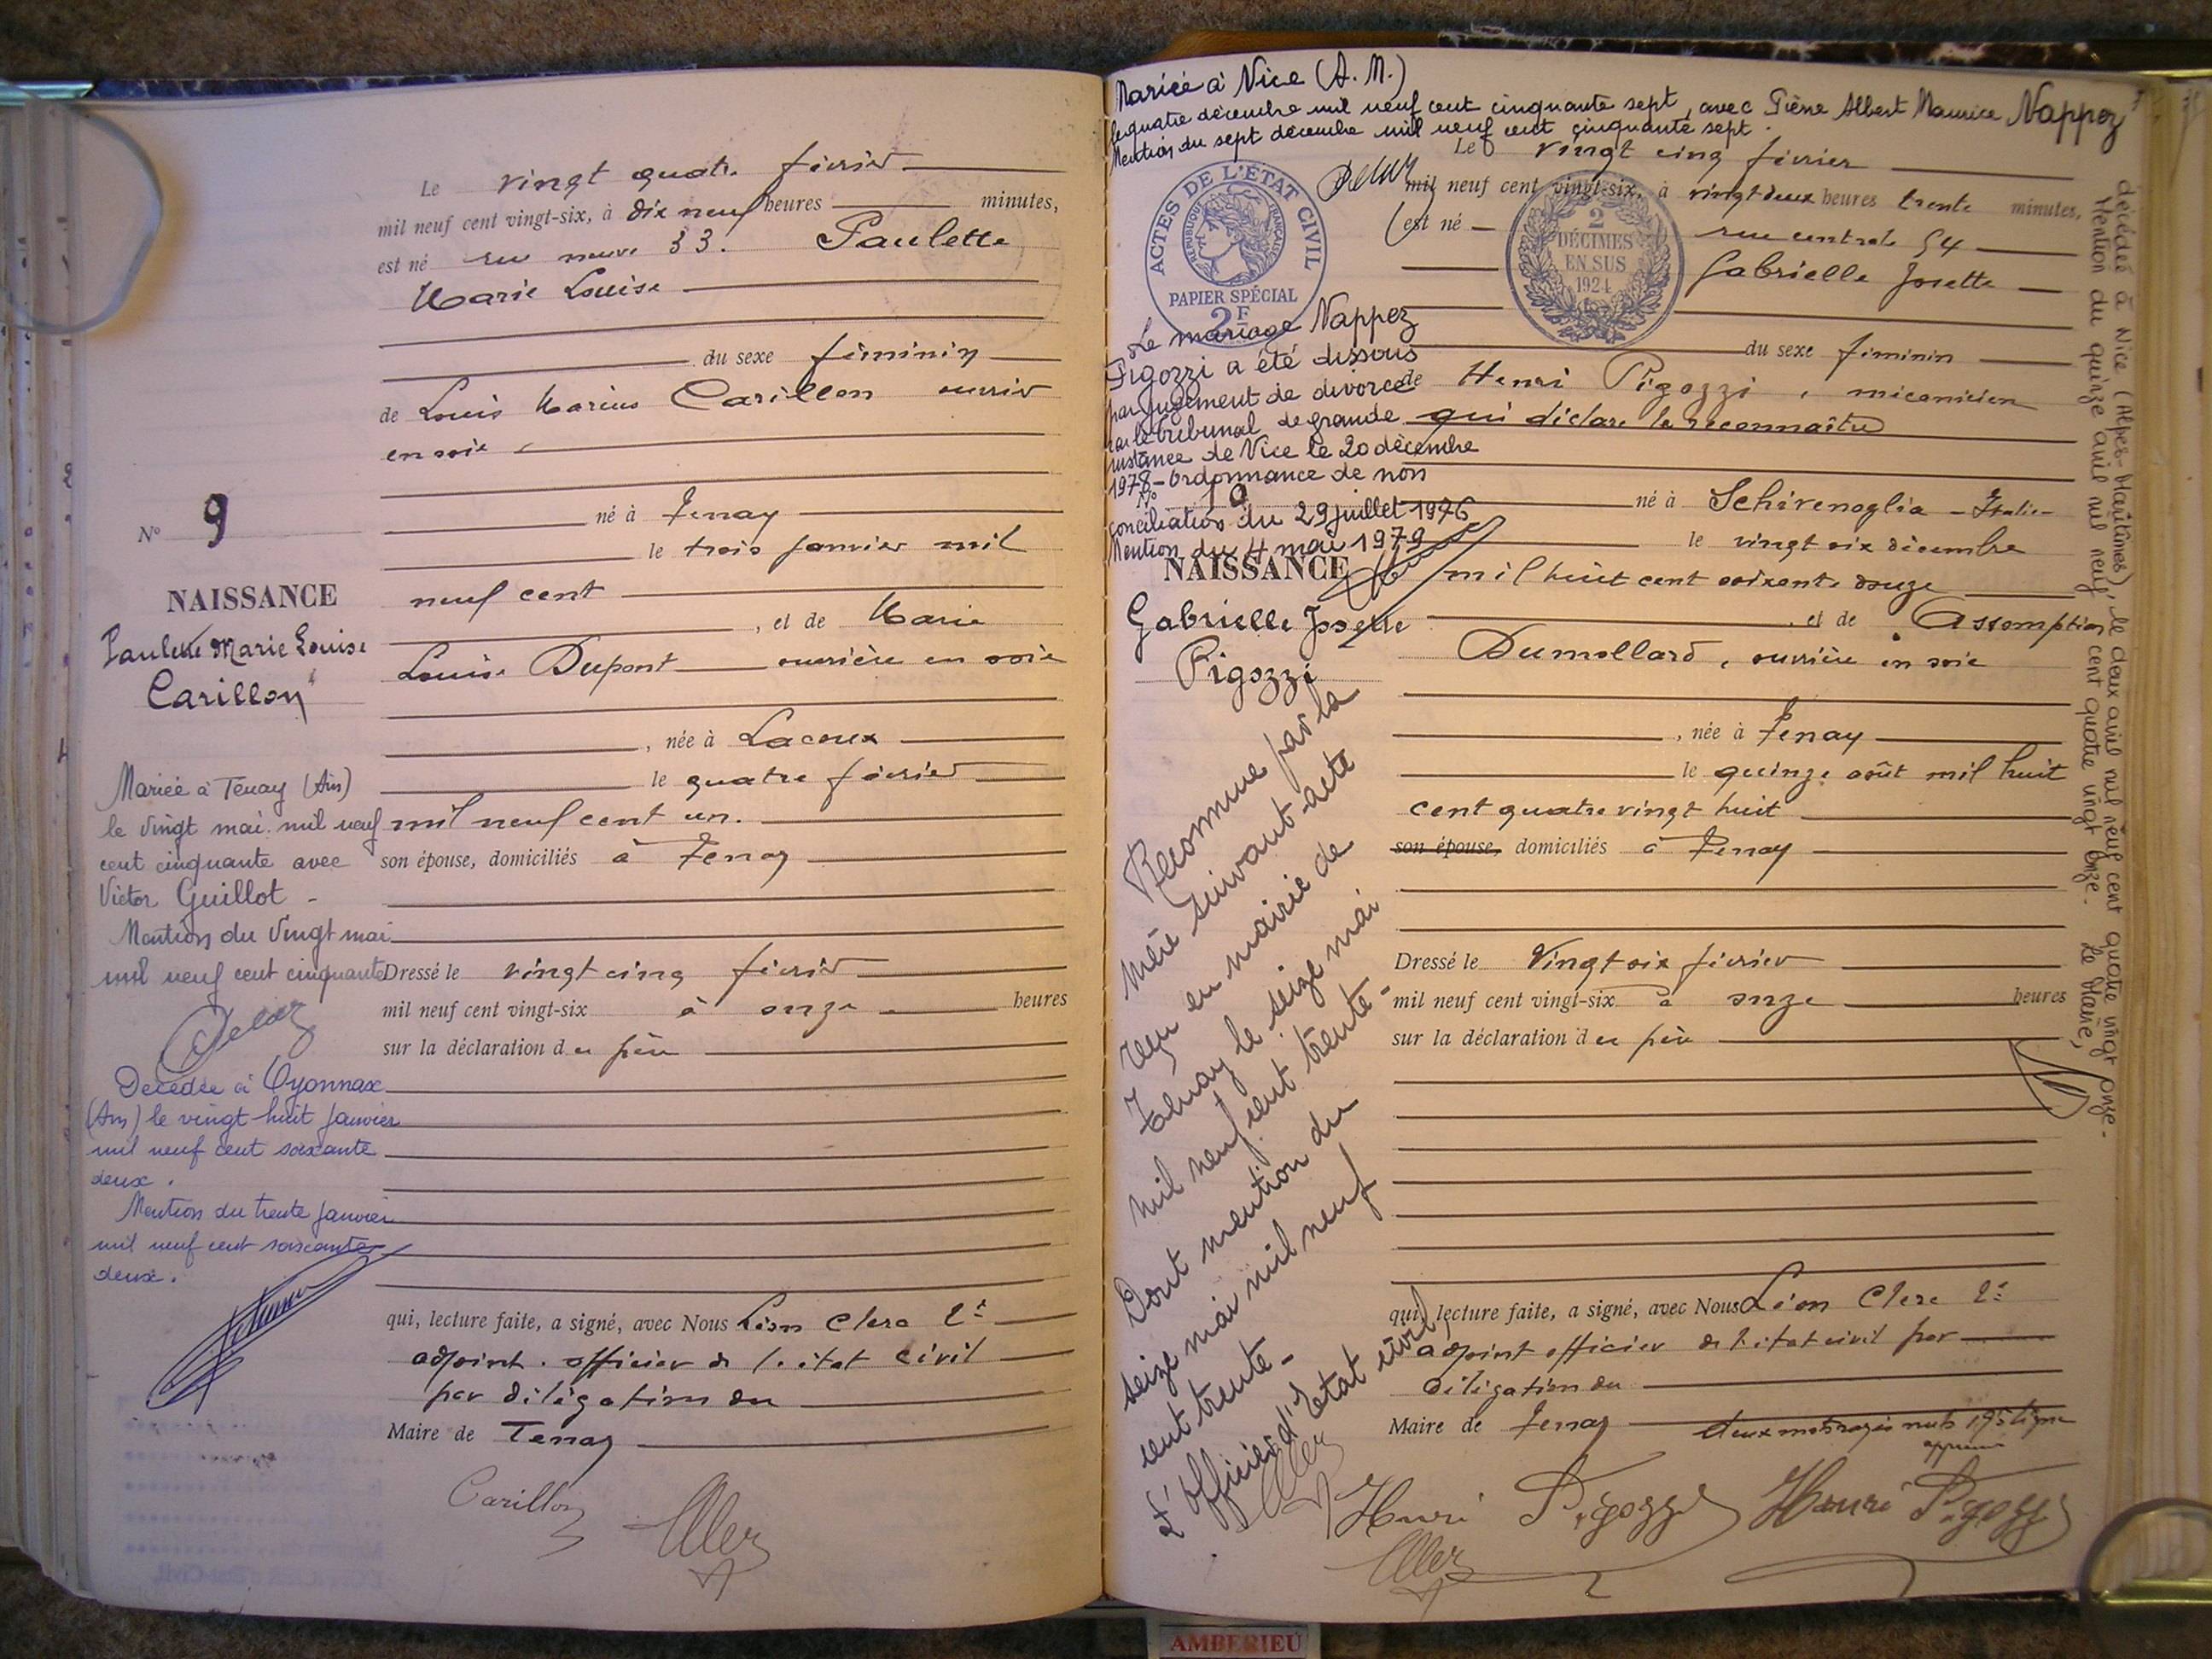 Le vingt quatre février
mil neuf cent vingt-six, à dix neuf heures minutes,
est né rue neuve 33. Paulette
Marie Louise
du sexe féminin
de Louis Marius Carillon ouvrier
en soie
né à Tenay
le trois janvier mil
neuf cent
, et de Marie
Louise Dupont ouvrière en soie
, née à Lacoux
le quatre février
mil neuf cent un.
son épouse, domiciliés à Tenay
Dressé le vingt cinq février
mil neuf cent vingt-six à onze heures
sur la déclaration du père
qui, lecture faite, a signé, avec Nous Léon Clerc 2e
adjoint. officier de l'état civil
par délégation du
Maire de Tenay
Carillon
N° 9
NAISSANCE
Paulette Marie Louise
Carillon
Mariée à Tenay (Ain)
le vingt mai mil neuf
cent cinquante avec
Victor Guillot -
Mention du vingt mai
mil neuf cent cinquante
Décédée à Oyonnax
(Ain) le vingt huit janvier
mil neuf cent soixante
deux.
Mention du trente janvier
mil neuf cent soixante
deux.
Mariée à Nice (A. M.)
le quatre décembre mil neuf cent cinquante sept, avec Pierre Albert Maurice Nappez
Mention du sept décembre mil neuf cent cinquante sept.
ACTES DE L'ÉTAT CIVIL
RÉPUBLIQUE FRANÇAISE
PAPIER SPÉCIAL
2F
2
DÉCIMES
EN SUS
1924
Le vingt cinq février
mil neuf cent vingt-six, à vingt deux heures trente minutes,
est né rue centrale 54
Gabrielle Josette
du sexe féminin
de Henri Pigozzi, mécanicien
qui déclare la reconnaître
né à Schivenoglia - Italie -
le vingt six décembre
mil huit cent soixante douze
, et de Assomption
Dumollard, ouvrière en soie
, née à Tenay
le quinze août mil huit
cent quatre vingt huit
son épouse, domiciliés à Tenay
Dressé le Vingt six février
mil neuf cent vingt-six à onze heures
sur la déclaration du père
qui, lecture faite, a signé, avec Nous Léon Clerc 2e
adjoint officier de l'état civil par
délégation du
Maire de Tenay deux mots rayés nuls 19e ligne
Henri Pigozzi Henri Pigozzi
Le mariage Nappez
Pigozzi a été dissous
par jugement de divorce
par le tribunal de grande
instance de Nice le 20 décembre
1978 - Ordonnance de non
conciliation du 29 juillet 1976
Mention du 4 mai 1979
N° 10
NAISSANCE
Gabrielle Josette
Pigozzi
Reconnue par la
mère suivant acte
reçu en mairie de
Tenay le seize mai
mil neuf cent trente -
Dont mention du
seize mai mil neuf
cent trente -
L'officier d'Etat civil,
décédée à Nice (Alpes-Maritimes), le deux avril mil neuf cent quatre vingt onze -
Mention du quinze avril mil neuf cent quatre vingt onze - Le Maire,
AMBERIEU